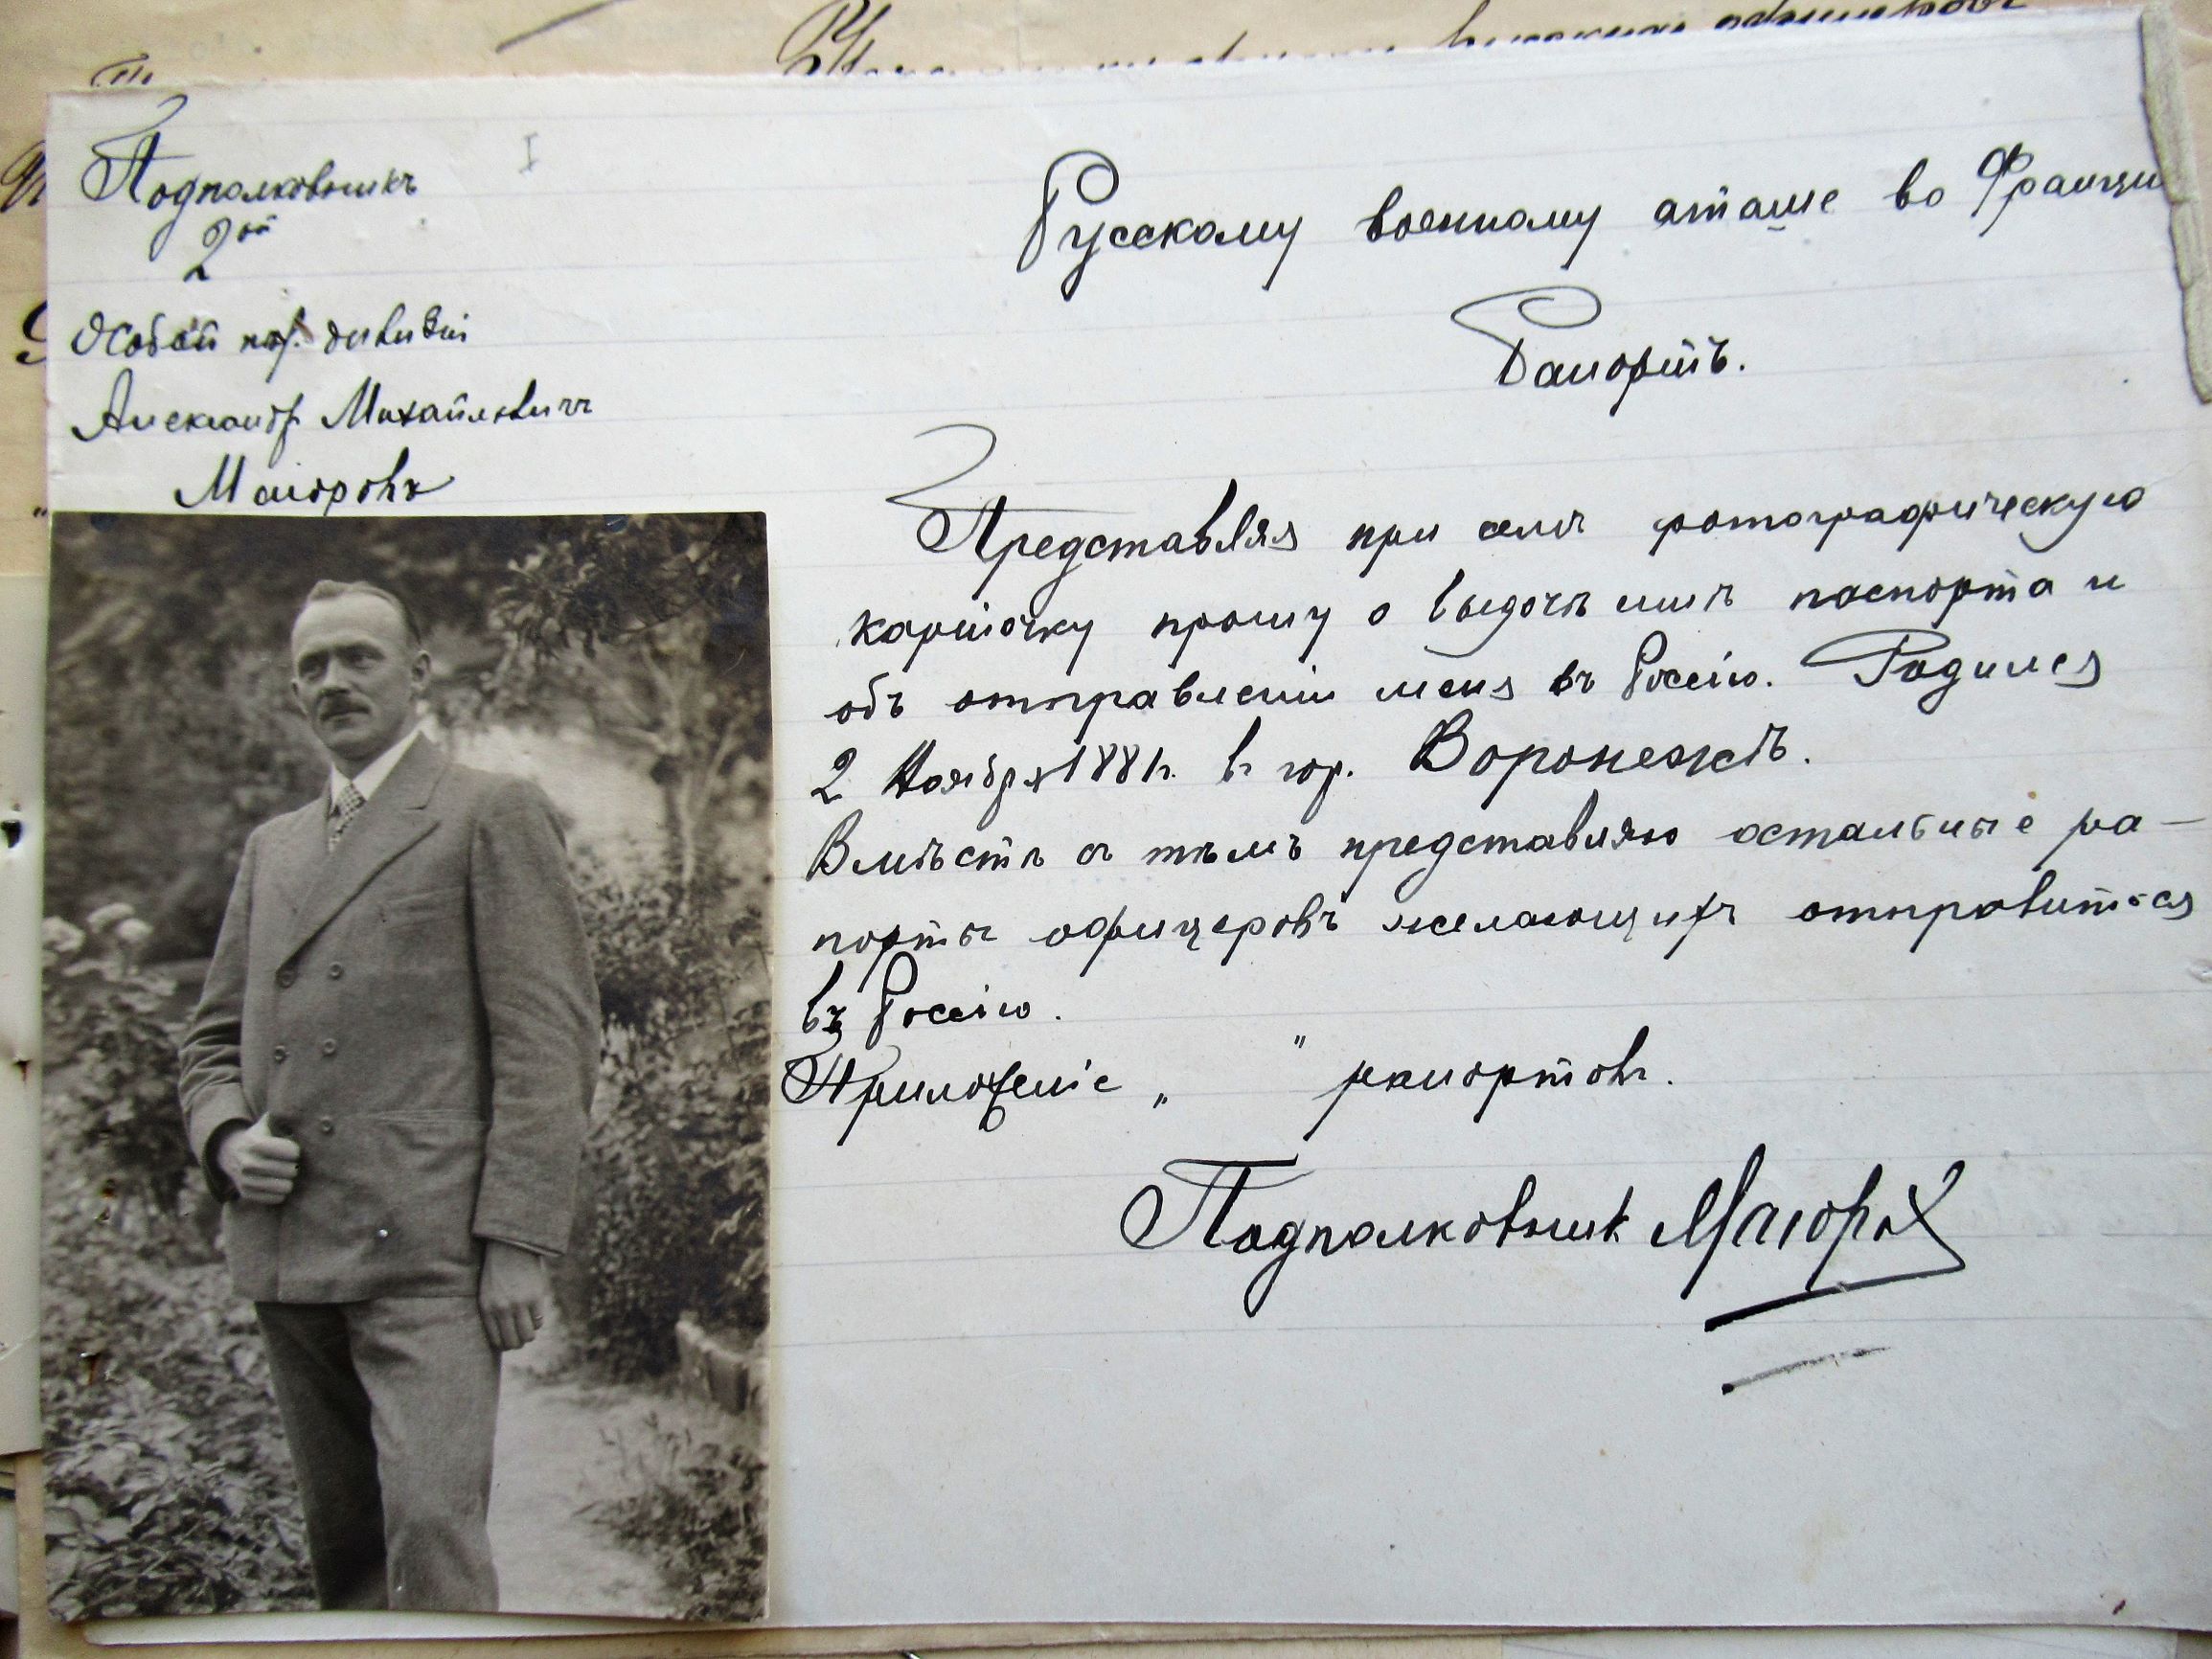 Подполковникъ
I
2ой
Особой пѣх. дивизіи
Александр Михайловичъ
Маіоровъ
Русскому военному аташе во Франци
Рапортъ.
Представляя при семъ фотографическую
карточку прошу о выдачѣ мнѣ паспорта и
объ отправленіи меня въ Россію. Родился
2 Ноября 1881г. в гор. Воронежѣ.
Вмѣстѣ съ тѣмъ представляю остальные ра-
порты офицеровъ желающихъ отправиться
въ Россію.
Приложеніе „ " рапортовъ.
Подполковник Маіоров